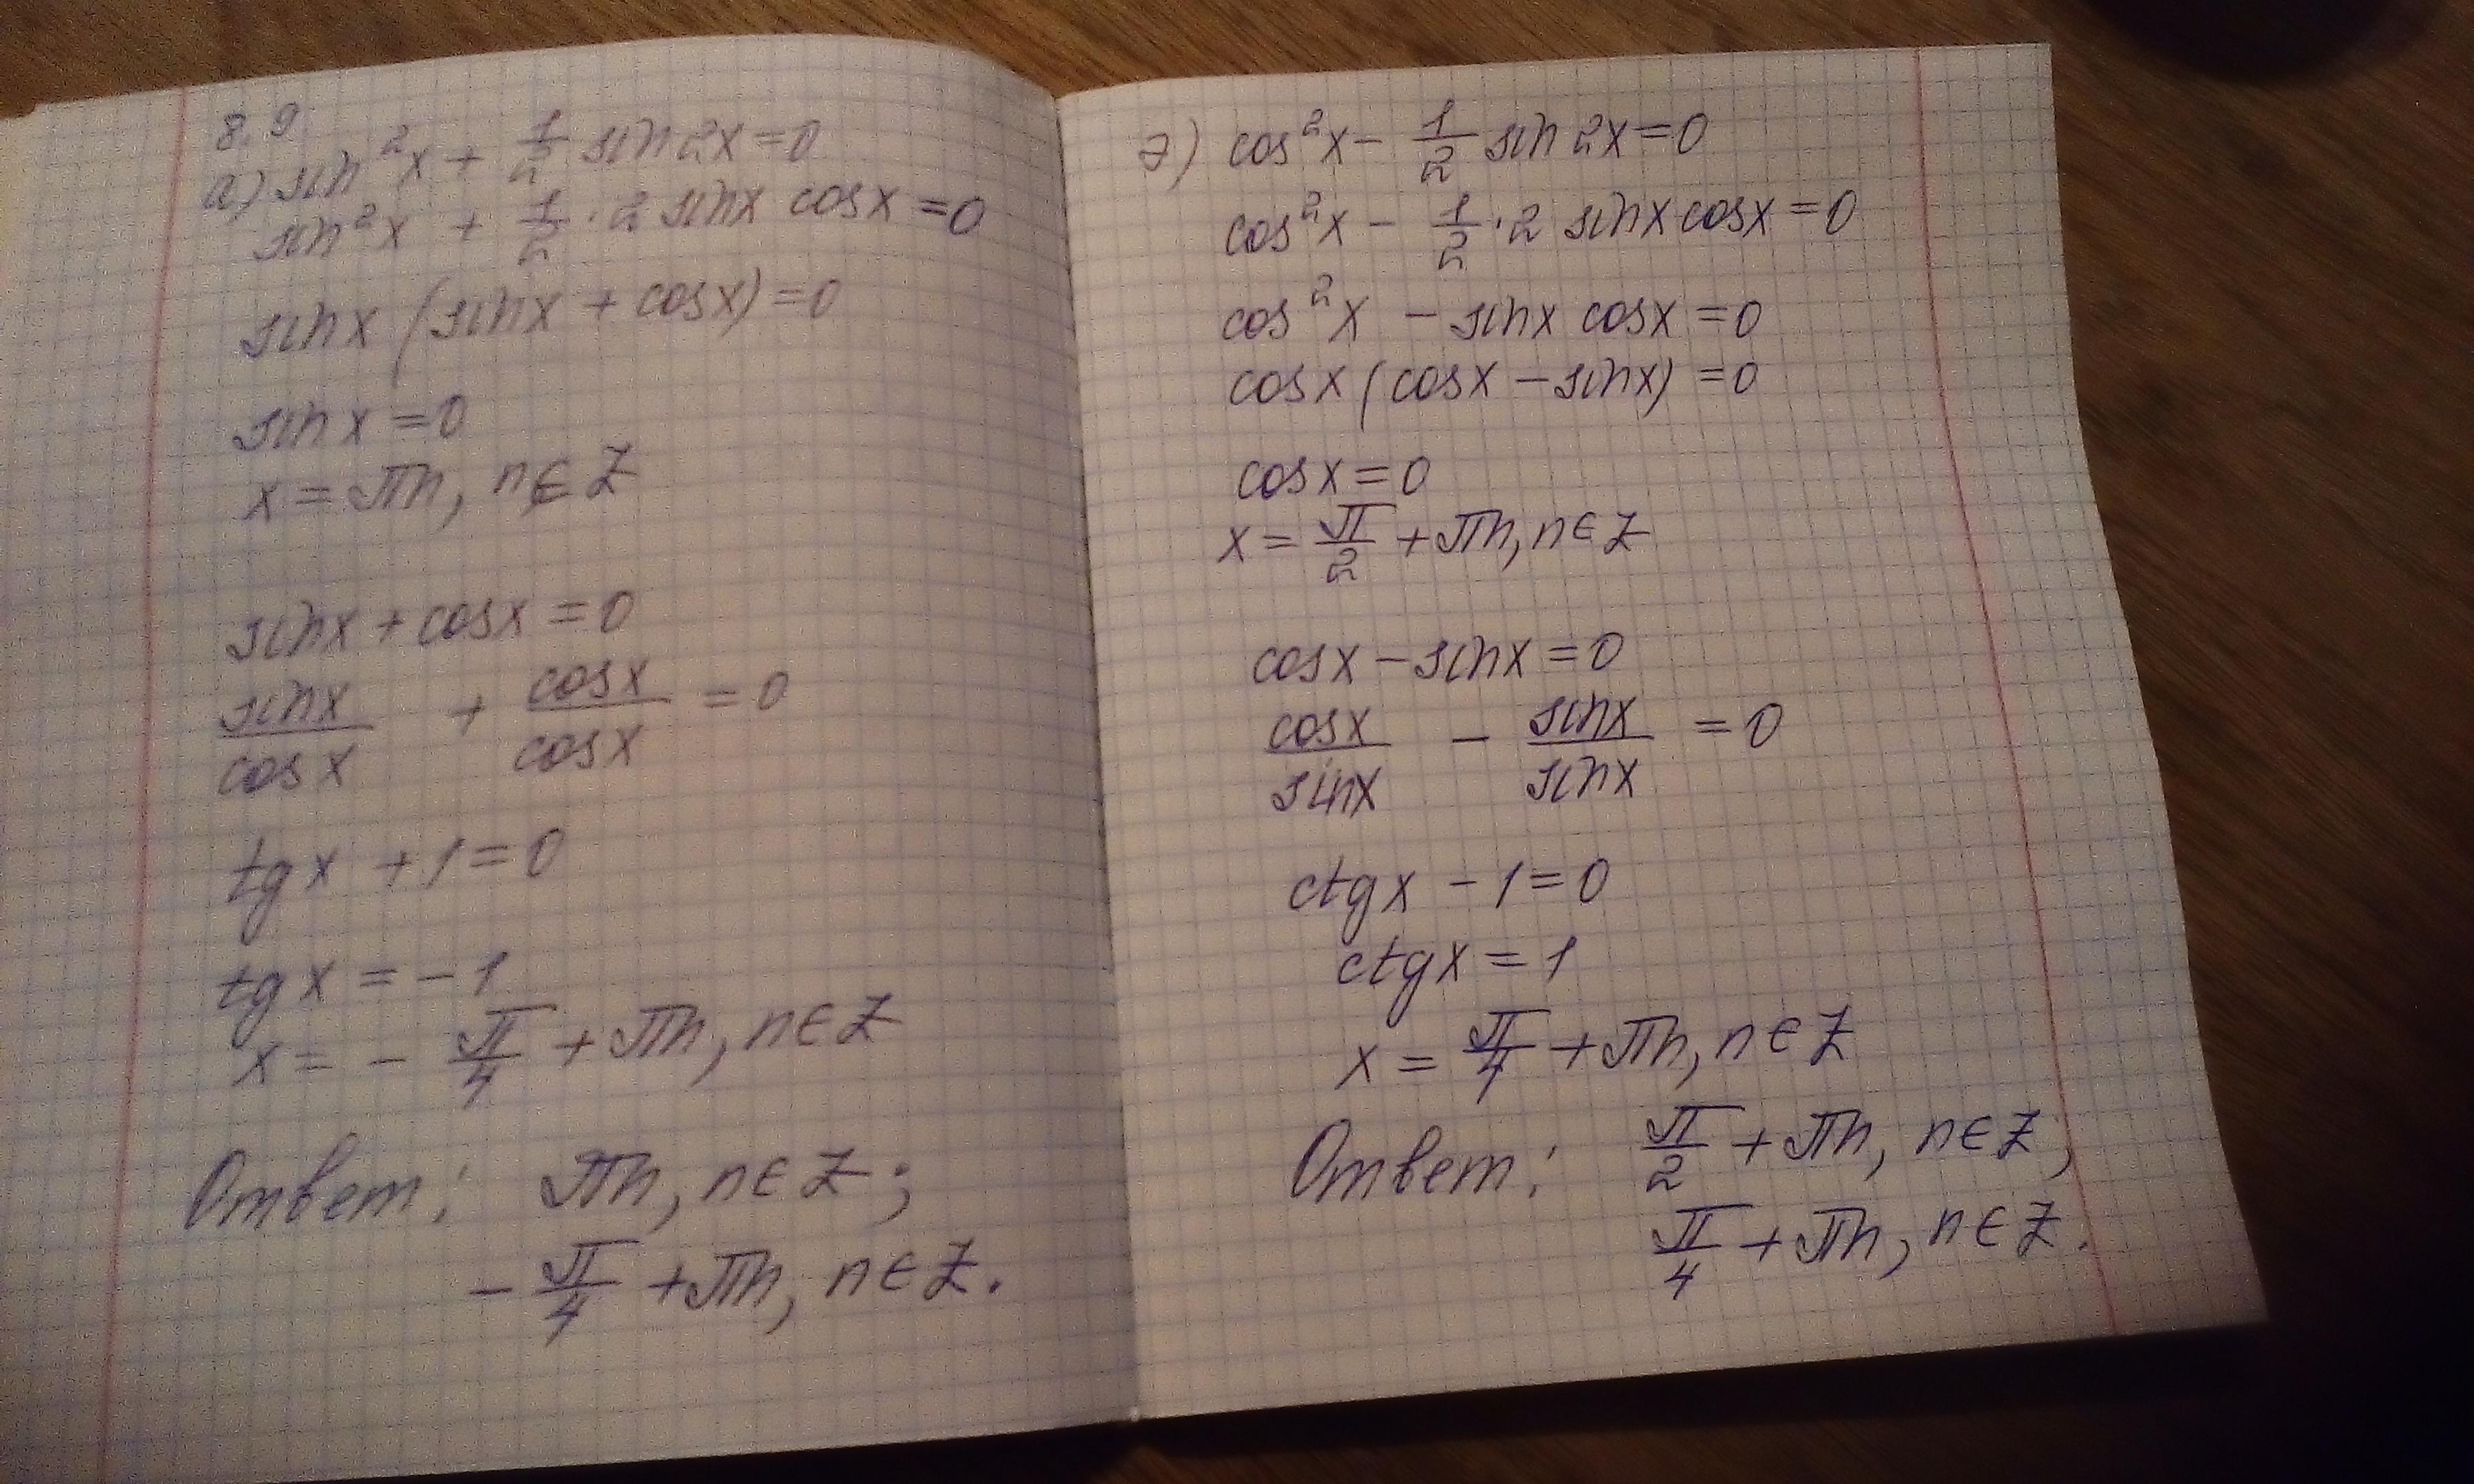 8.9
а) sin²x + 1/2 sin 2x = 0
sin²x + 1/2 · 2 sinx cosx = 0
sinx (sinx + cosx) = 0
sinx = 0
x = πn, n ∈ Z
sinx + cosx = 0
sinx/cosx + cosx/cosx = 0
tgx + 1 = 0
tgx = -1
x = - π/4 + πn, n ∈ Z
Ответ: πn, n ∈ Z;
- π/4 + πn, n ∈ Z.
г) cos²x - 1/2 sin 2x = 0
cos²x - 1/2 · 2 sinx cosx = 0
cos²x - sinx cosx = 0
cosx (cosx - sinx) = 0
cosx = 0
x = π/2 + πn, n ∈ Z
cosx - sinx = 0
cosx/sinx - sinx/sinx = 0
ctgx - 1 = 0
ctgx = 1
x = π/4 + πn, n ∈ Z
Ответ: π/2 + πn, n ∈ Z;
π/4 + πn, n ∈ Z.